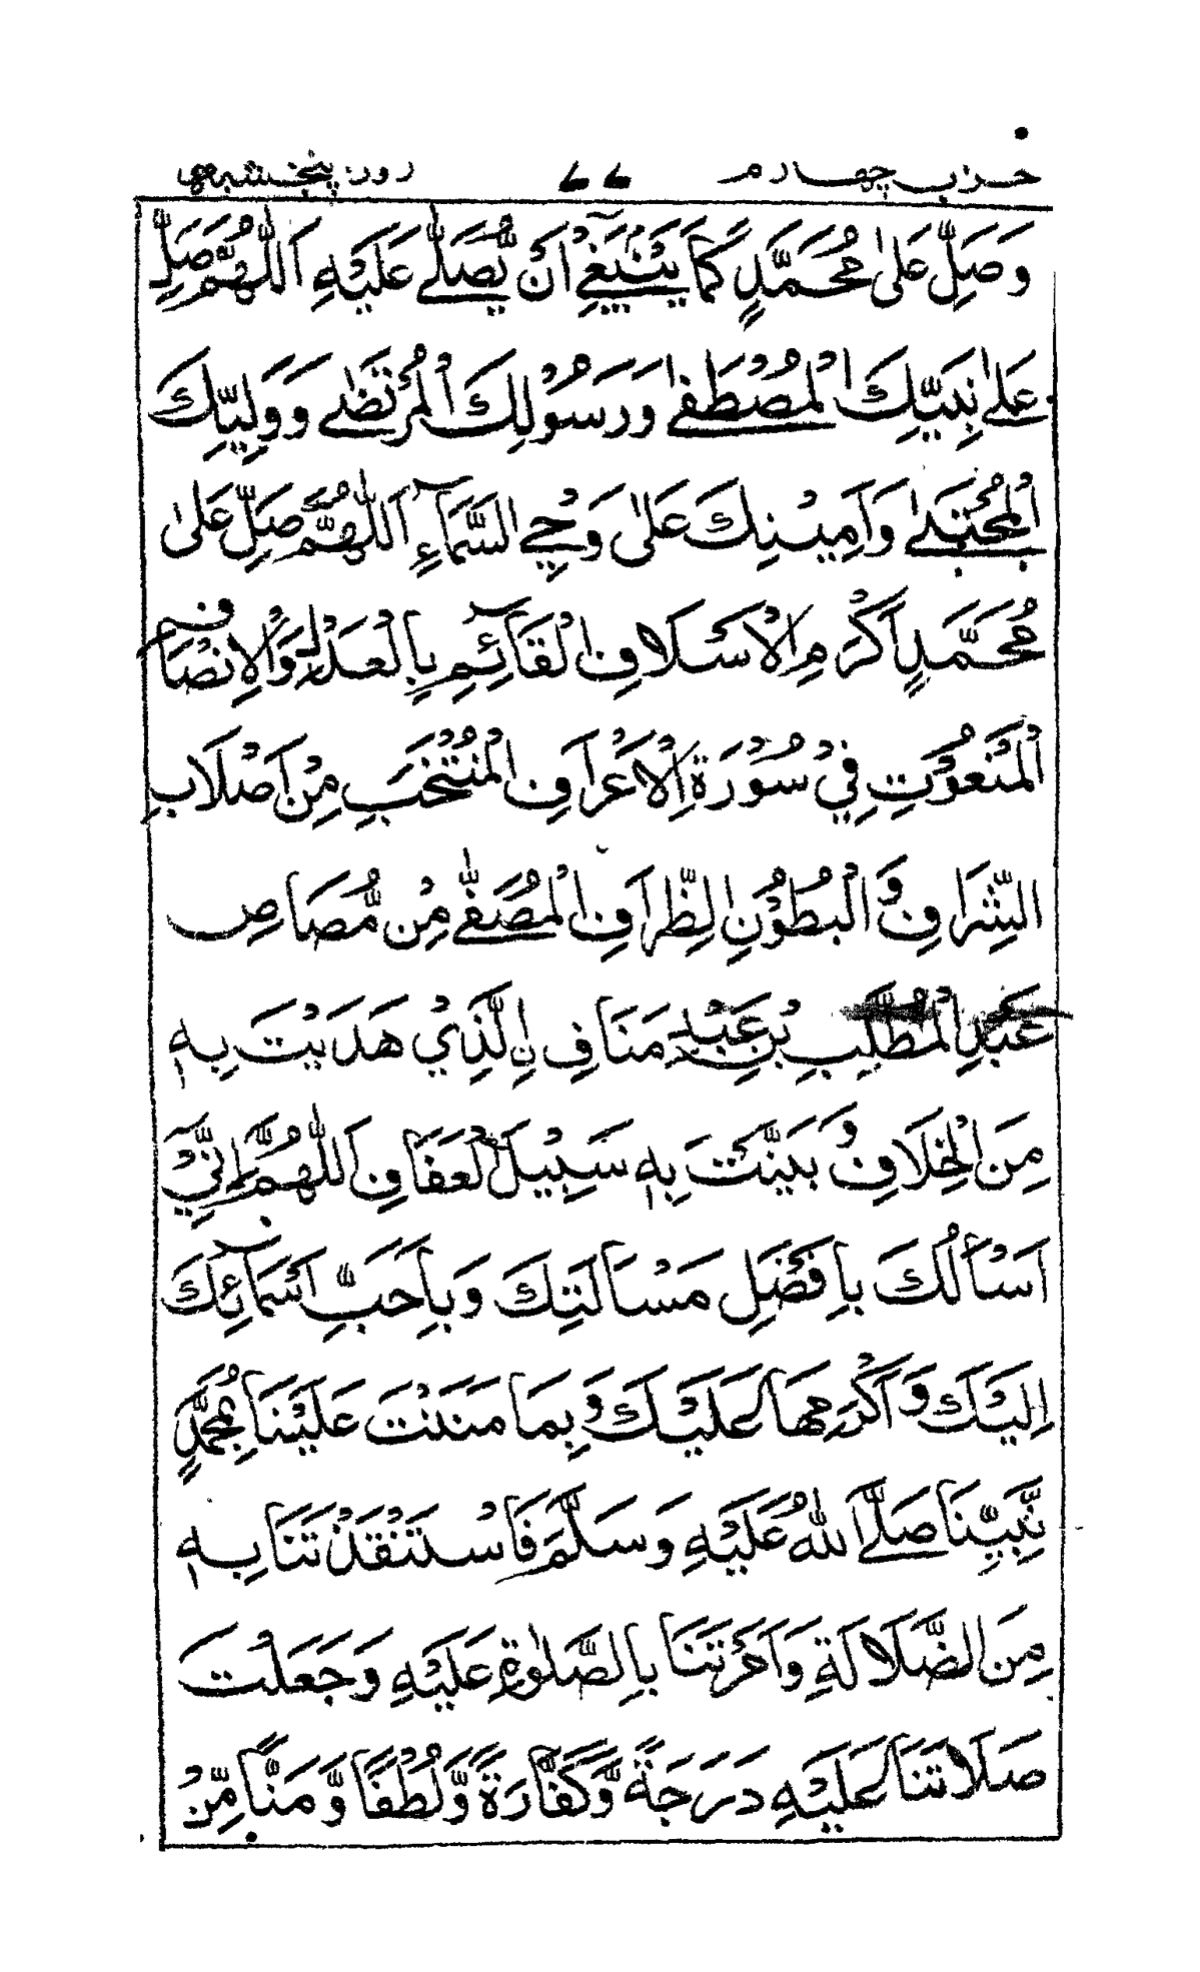 حزب چهارم ٧٧ روز پنجشنبهی
وَصَلِّ عَلٰى مُحَمَّدٍ كَمَا يَنْۢبَغِيْ اَنْ يُّصَلّٰى عَلَيْهِ اَللّٰهُمَّ صَلِّ
عَلٰى نَبِيِّكَ الْمُصْطَفٰى وَرَسُوْلِكَ الْمُرْتَضٰى وَوَلِيِّكَ
الْمُجْتَبٰى وَاَمِيْنِكَ عَلٰى وَحْيِ السَّمَآءِ اَللّٰهُمَّ صَلِّ عَلٰى
مُحَمَّدٍ اَكْرَمِ الْاَسْلَافِ الْقَآئِمِ بِالْعَدْلِ وَالْاِنْصَافِ
الْمَنْعُوْتِ فِيْ سُوْرَةِ الْاَعْرَافِ الْمُنْتَخَبِ مِنْ اَصْلَابِ
الشِّرَافِ وَالْبُطُوْنِ الظِّرَافِ الْمُصَفّٰى مِنْ مُّصَاصِ
عَبْدِ الْمُطَّلِبِ بْنِ عَبْدِ مَنَافِ نِ الَّذِيْ هَدَيْتَ بِهٖ
مِنَ الْخِلَافِ وَبَيَّنْتَ بِهٖ سَبِيْلَ الْعَفَافِ اَللّٰهُمَّ اِنِّيْٓ
اَسْاَلُكَ بِاَفْضَلِ مَسْاَلَتِكَ وَبِاَحَبِّ اَسْمَآئِكَ
اِلَيْكَ وَاَكْرَمِهَا عَلَيْكَ وَبِمَا مَنَنْتَ عَلَيْنَا بِمُحَمَّدٍ
نَّبِيِّنَا صَلَّى اللّٰهُ عَلَيْهِ وَسَلَّمَ فَاسْتَنْقَذْتَنَا بِهٖ
مِنَ الضَّلَالَةِ وَاَمَرْتَنَا بِالصَّلٰوةِ عَلَيْهِ وَجَعَلْتَ
صَلَاتَنَا عَلَيْهِ دَرَجَةً وَّكَفَّارَةً وَّلُطْفًا وَّمَنًّا مِّنْ